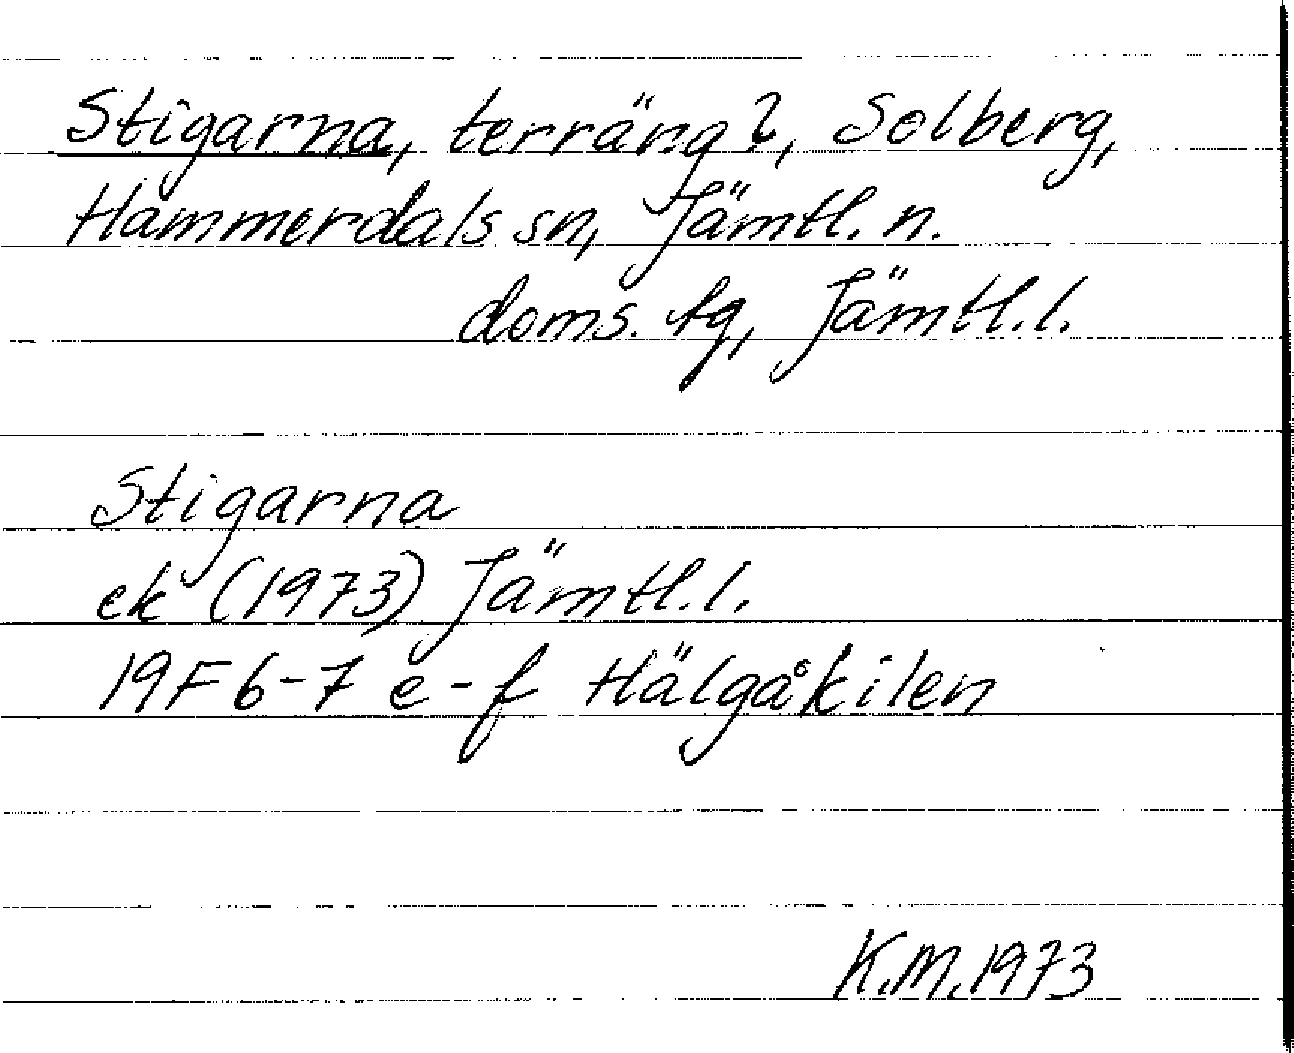 Stigarna, terräng?, Solberg,
Hammerdals sn, Jämtl. n.
doms. tg, Jämtl. l.
Stigarna
ek (1973) Jämtl. l.
19F 6-7 e-f Hälgåkilen
K.M. 1973